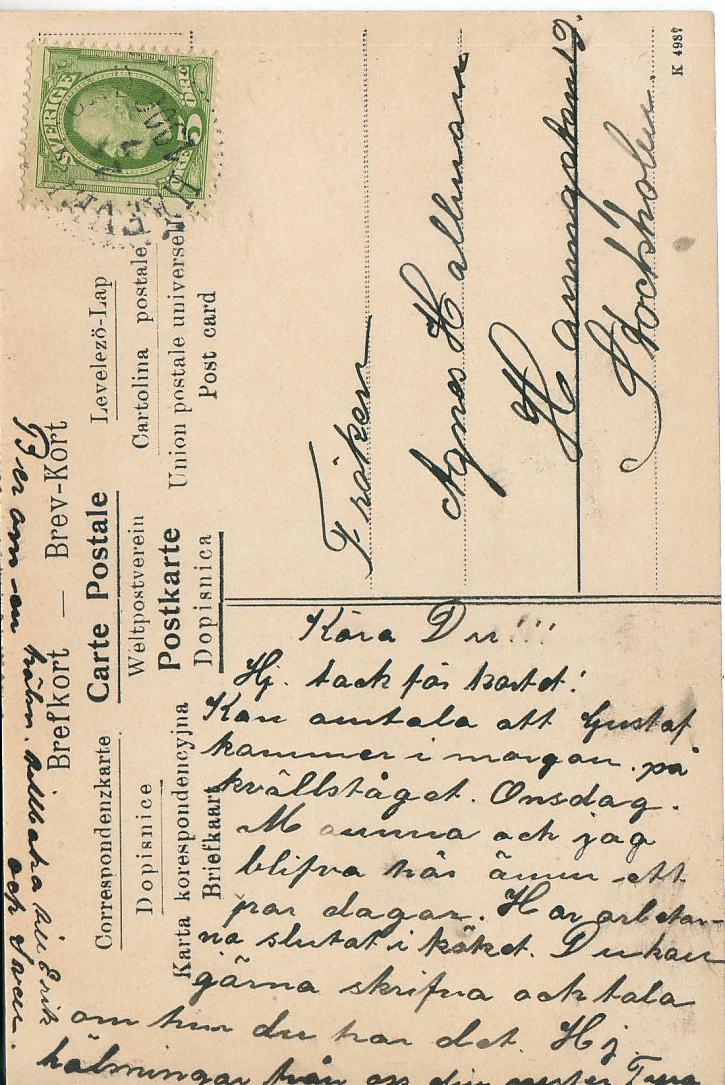 K 4987
SVERIGE
5
ÖRE
Brefkort — Brev-Kort
Carte Postale
Correspondenzkarte
Levelező-Lap
Weltpostverein
Dopisnice
Cartolina postale
Postkarte
Karta korespondencyjna
Union postale universelle
Dopisnica
Briefkaart
Post card
Fröken
Agnes Hallman
Hamngatan 19.
Stockholm
Kära Du!!!
Hj. tack för kortet!
Kan omtala att Gustaf
kommer i morgon på
kvällståget. Onsdag.
Mamma och jag
blifva här ännu ett
par dagar. Har arbetar-
na slutat i köket. Du kan
gärna skrifva och tala
om hur du har det. Hj
hälsningar från oss din syster
Ber om en hälsn. tillbaka till Erik
och Sven.